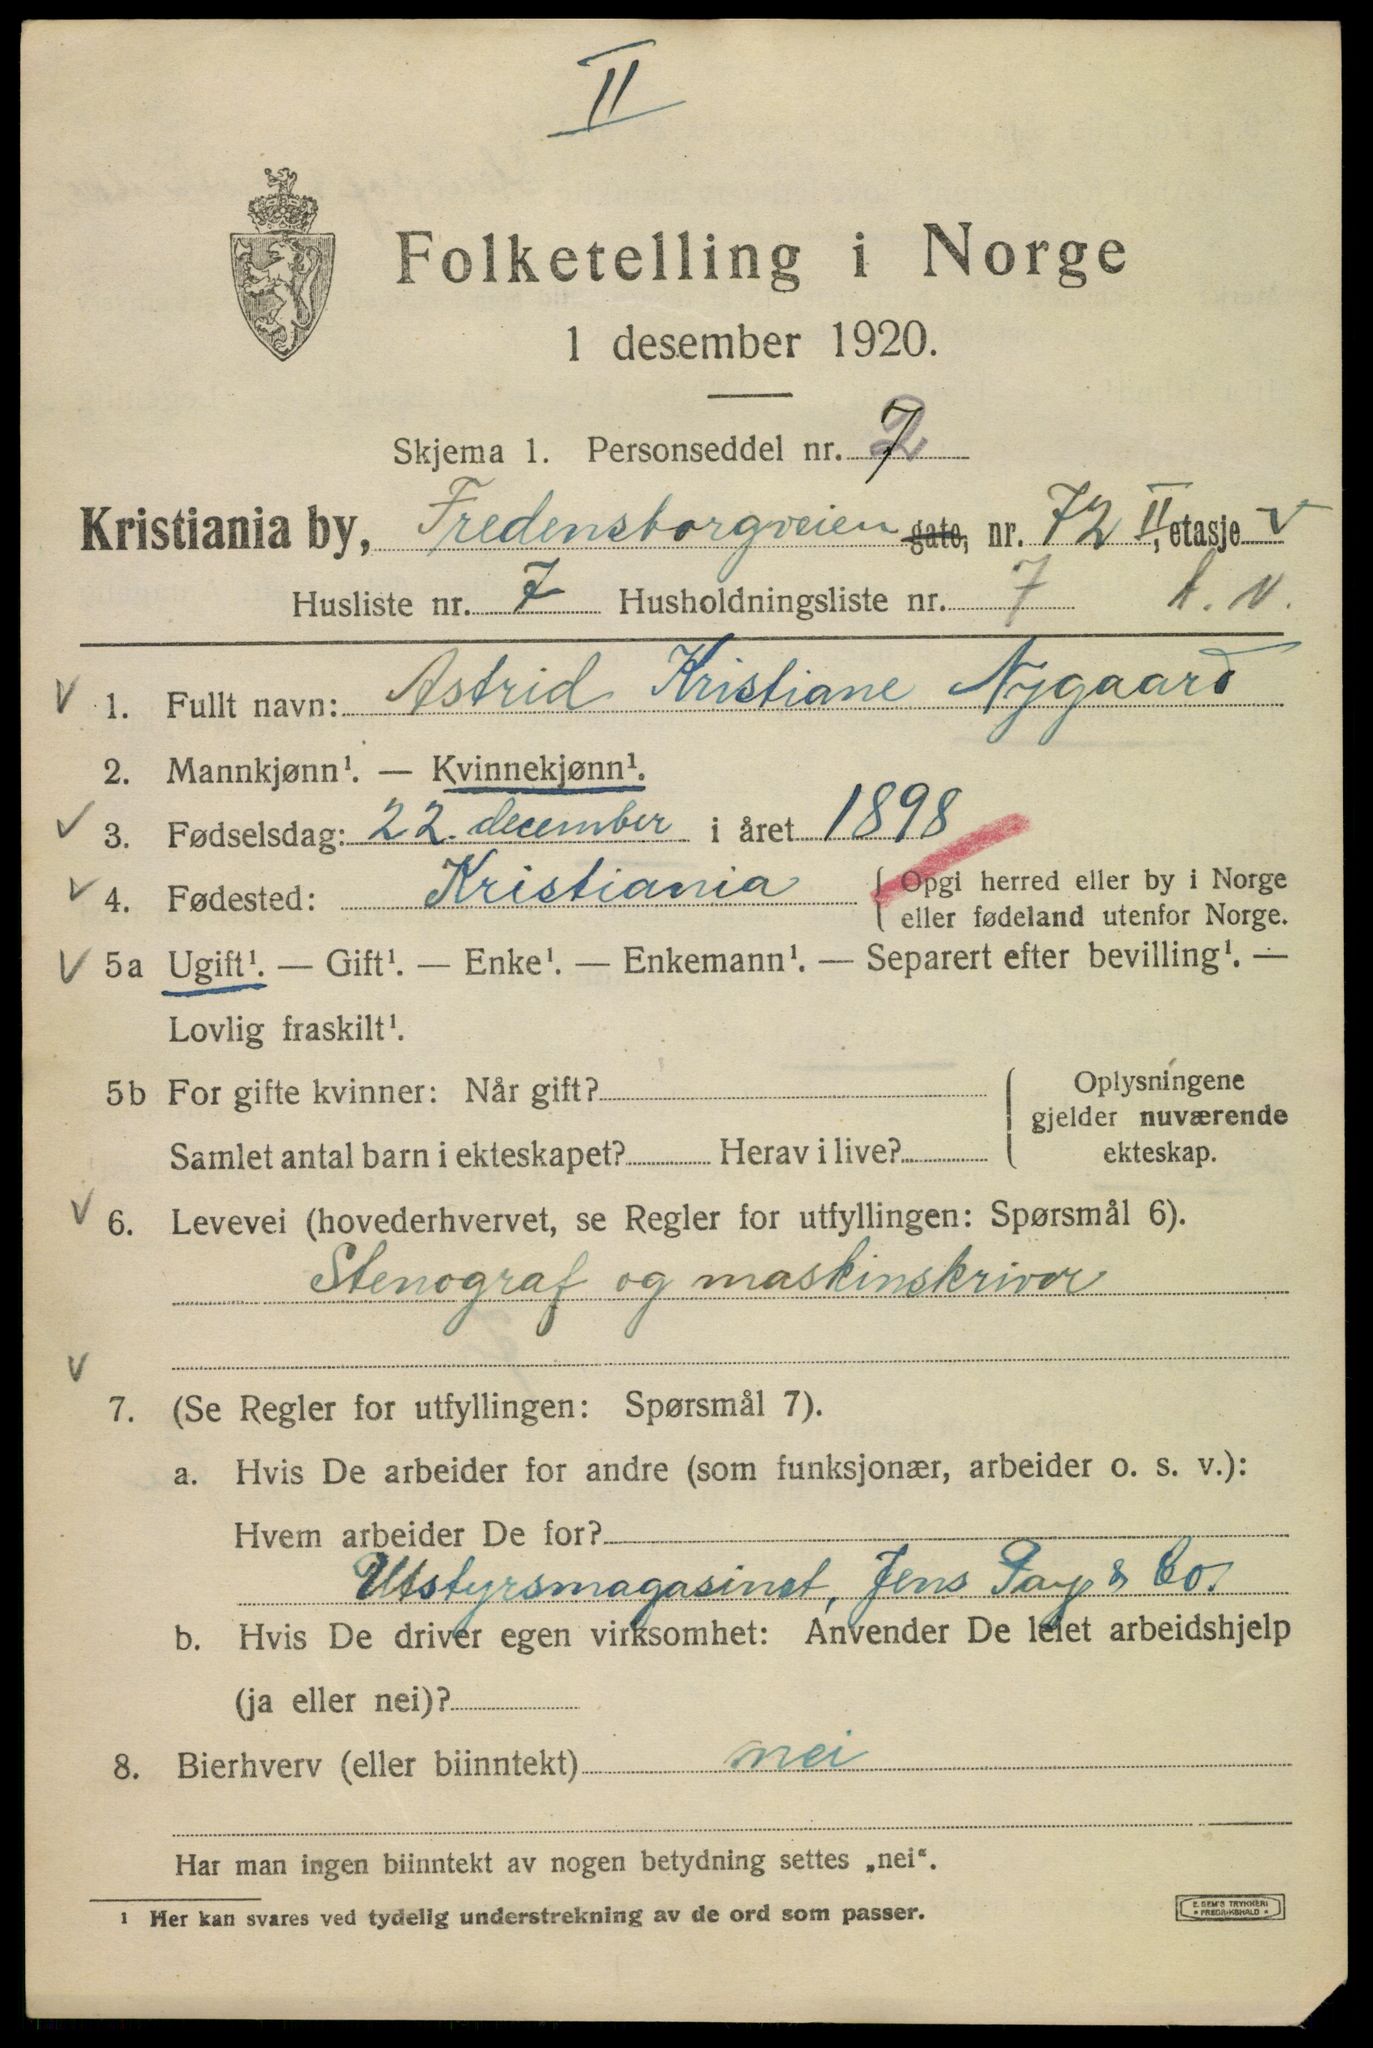 II
Folketelling i Norge
1 desember 1920.
Skjema 1. Personseddel nr. 7
Kristiania by, Fredensborgveien gate, nr. 72 II, etasje
Husliste nr. 7 Husholdningsliste nr. 7
1. Fullt navn: Astrid Kristiane Nygaard
2. Mannkjønn¹. — Kvinnekjønn¹.
3. Fødselsdag: 22. december i året 1898
4. Fødested: Kristiania { Opgi herred eller by i Norge
eller fødeland utenfor Norge.
5a Ugift¹. — Gift¹. — Enke¹. — Enkemann¹. — Separert efter bevilling¹. —
Lovlig fraskilt¹.
5b For gifte kvinner: Når gift?
Samlet antal barn i ekteskapet? Herav i live?
Oplysningene
gjelder nuværende
ekteskap.
6. Levevei (hovederhvervet, se Regler for utfyllingen: Spørsmål 6).
Stenograf og maskinskriver
7. (Se Regler for utfyllingen: Spørsmål 7).
a. Hvis De arbeider for andre (som funksjonær, arbeider o. s. v.):
Hvem arbeider De for?
Utstyrsmagasinet, Jens Pay & Co.
b. Hvis De driver egen virksomhet: Anvender De leiet arbeidshjelp
(ja eller nei)?
8. Bierhverv (eller biinntekt) nei
Har man ingen biinntekt av nogen betydning settes „nei“.
¹ Her kan svares ved tydelig understrekning av de ord som passer.
E. SEM'S TRYKKERI
* FREDRIKSHALD *